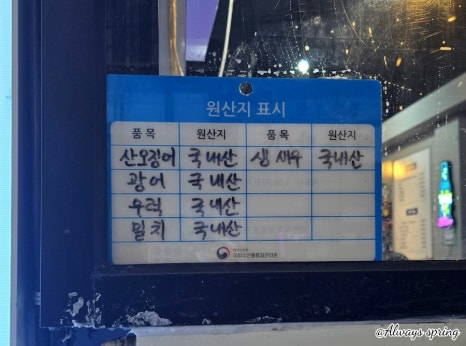 원산지 표시
품 목 원산지 품 목 원산지
산오징어 국내산 생 새우 국내산
광어 국내산
우럭 국내산
밀치 국내산
국립수산물품질관리원
@Always spring